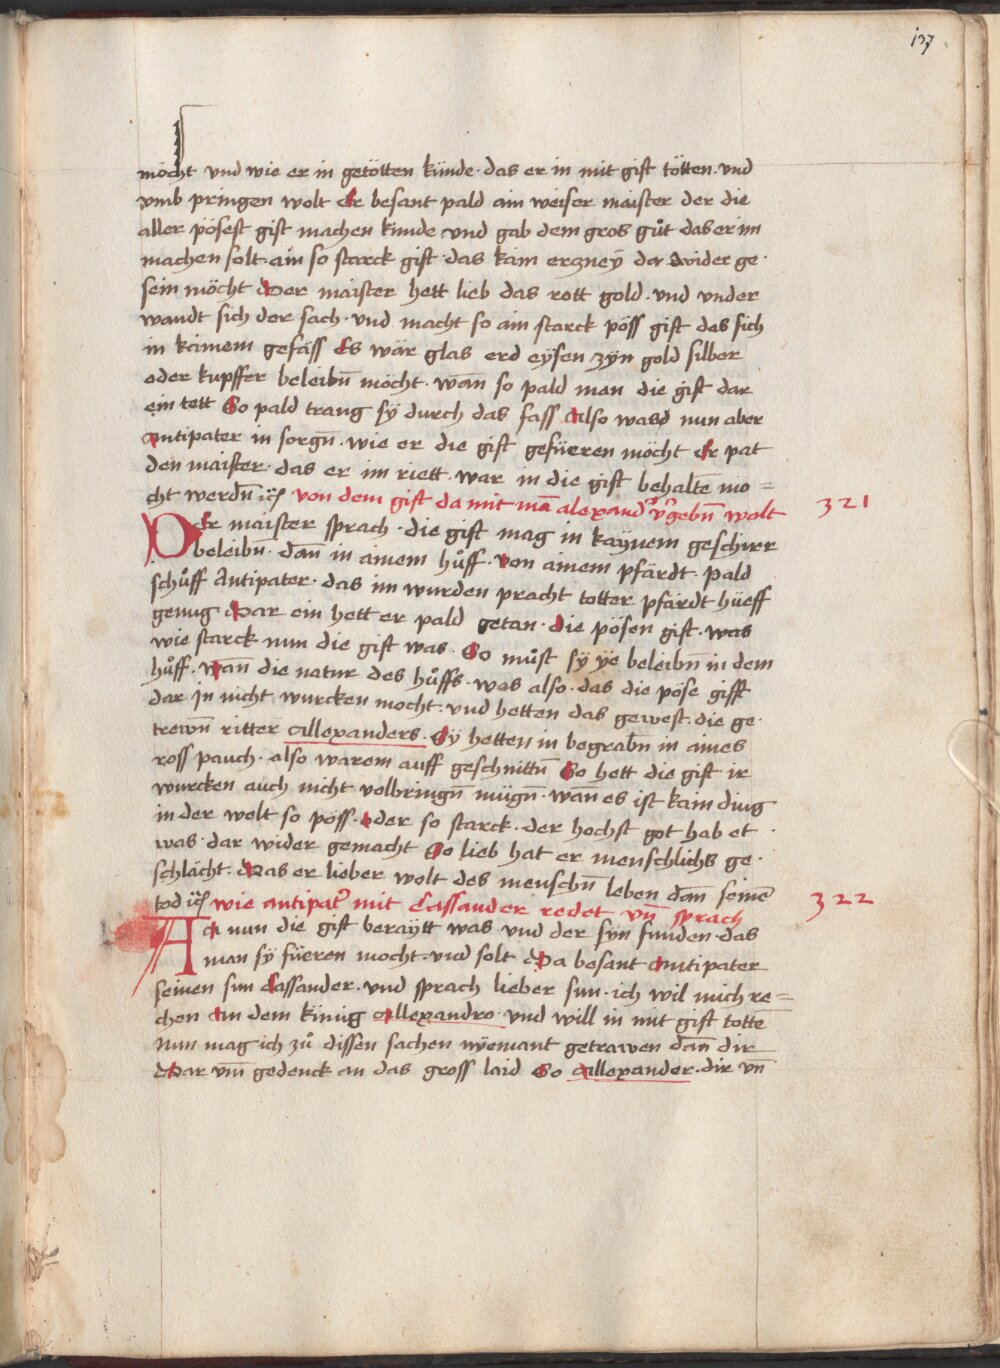 137
möcht und wie er in getötten künde · das er in mit gift tötten · und
vmb pringen wolt Er besant pald ain weiser maister der die
aller pösest gift machen kunde und gab dem gros gůt das er im
machen solt · ain so starck gift · das kain erzneÿ dar wider ge·
sein möcht Der maister hett lieb das rott gold · und under
wandt sich der sach · und macht so ain starck pöss gift des sich
in kainem gefäss Es wär glas erd eÿsen zÿn gold silber
oder kupffer beleibn̄ möcht · wan̄ so pald man die gift dar
ein tett So pald trang sÿ durch das fass Also was nun aber
Antipater in sorgn̄ · wie er die gift gefüeren möcht Er pat
den maister · das er im riett · war in die gift behaltē mo=
cht werdn̄ von dem gift da mit mā alexandr̄ v'gebn̄ wolt 321
Der maister sprach · die gift mag in kaynem geschirr
beleibn̄ · dan̄ in ainem hůff · von ainem pfärdt · Pald
schůff Antipater · das im wurden pracht totter pfärdt hüeff
genug Dar ein hett er pald getan · die pösen gift · was
wie starck nun die gift was · So můst sÿ ÿe beleibn̄ in dem
hůff · wan̄ die natur des hůffs · was also · das die pöse gifft
dar jn nicht wurcken mocht · und hetten das gewest · die ge·
trewn̄ ritter Allexanders · Sÿ hetten in begrabn̄ in aines
ross pauch · also warem auff geschnittn̄ So hett die gift ir
wurcken auch nicht volbringn̄ mügn̄ · wan̄ es ist kain ding
in der welt so pöss · oder so starck · der hochst got hab et·
was · dar wider gemacht So lieb hat er menschlichs ge·
schlächt · Das er lieber wolt des menschn̄ leben dan̄ seinē
tod wie antipat' mit Cassander redet vn̄ sprach 322
Als nun die gift beraÿtt was und der sÿn funden · das
man sÿ füeren mocht · und solt Da besant Antipater
seinen sun Cassander · und sprach lieber sun · ich wil mich re=
chen an dem künig Allexandro · und will in mit gift tottē
Nun mag ich zů dissen sachen nÿemant getrawen dan̄ dir
Dar vm̄ gedenck an das gross laid So Allexander · dir vn̄